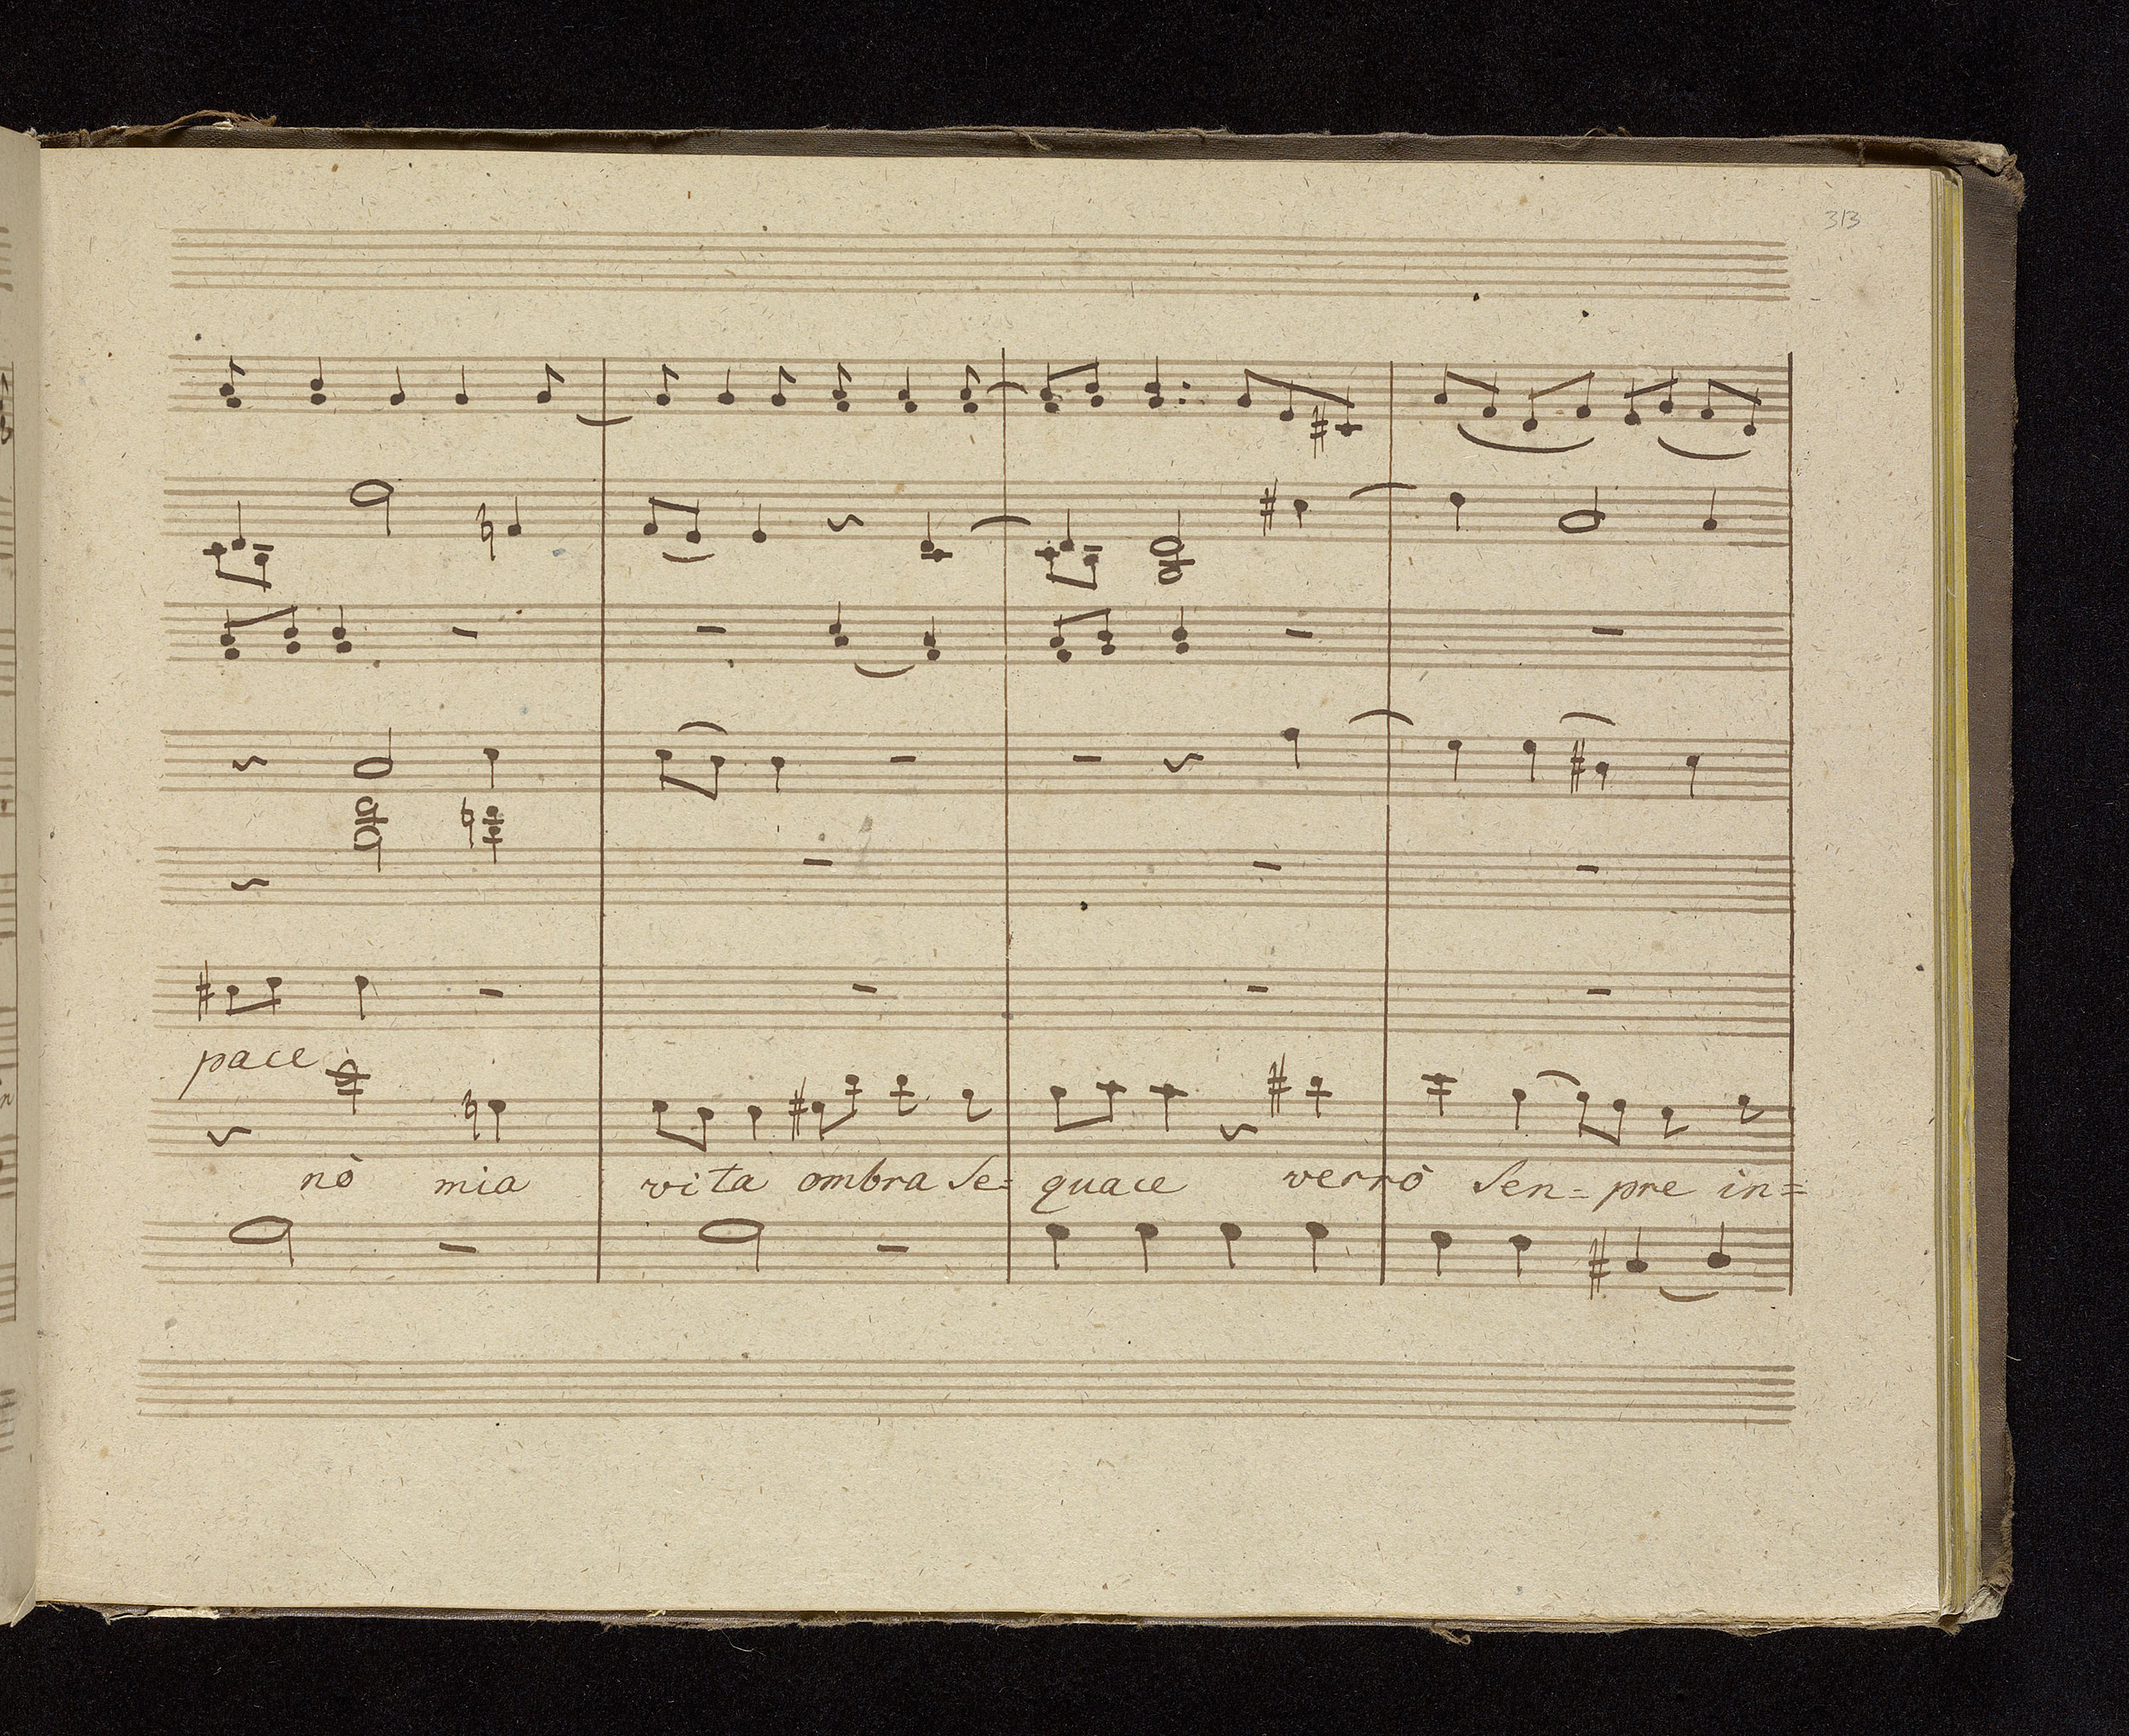 313
pace
nò mia vita ombra se= quace verrò sen= pre in=